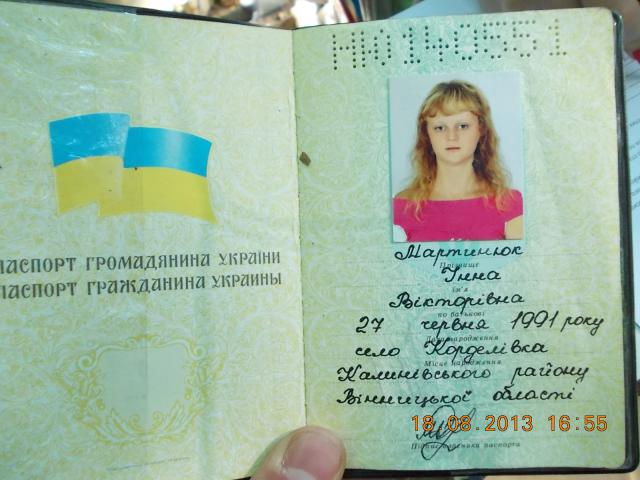 ПАСПОРТ ГРОМАДЯНИНА УКРАЇНИ
ПАСПОРТ ГРАЖДАНИНА УКРАИНЫ
НЮ140551
Мартинюк
Прізвище
Інна
ім'я
Вікторівна
по батькові
27 червня 1991 року
Дата народження
село Корделівка
Місце народження
Калинівського району
Вінницької області
18.08.2013 16:55
Підпис власника паспорта